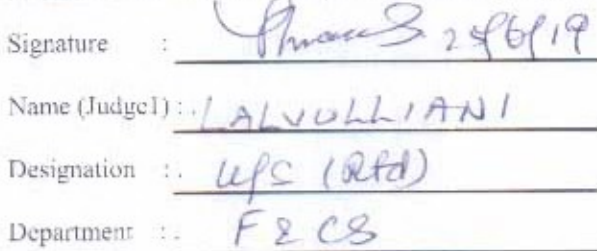 Signature :
Name (Judge1) : . LALVULLIANI
Designation : . U/S (Rtd)
Department : . F & CS